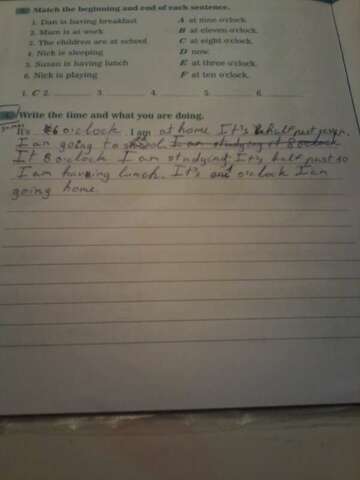 Match the beginning and end of each sentence.
1. Dan is having breakfast A at nine o'clock.
2. Mum is at work B at eleven o'clock.
3. The children are at school C at eight o'clock.
4. Nick is sleeping D now.
5. Susan is having lunch E at three o'clock.
6. Nick is playing F at ten o'clock.
1. C 2. 3. 4. 5. 6.
Write the time and what you are doing.
It's 6 o'clock. I am at home It's half past seven.
I am going to school. I am studying it 8 o'clock
It 8 o'clock I am studying It's half past 10
I am having lunch. It's o'clock I am
going home.